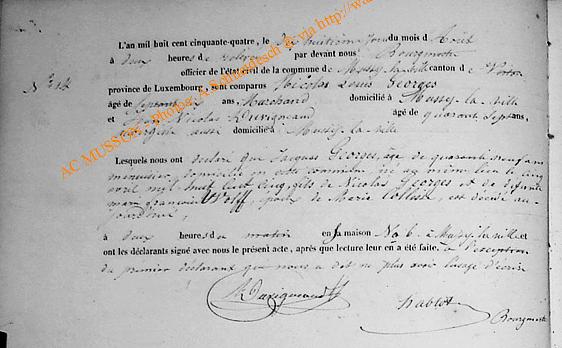 L'an mil huit cent cinquante-quatre, le dix huitième jour du mois d'Août
à deux heures de relevée par devant nous Bourgmestre
officier de l'état civil de la commune de Mussy-la-ville canton de Virton
N° 14
province de Luxembourg, sont comparus Nicolas Louis Georges
âgé de septante ans, Marchand domicilié à Mussy-la-ville
et Jean Nicolas Duvigneaud âgé de quarante sept ans,
aussi domicilié à Mussy-la-ville
Lesquels nous ont déclaré que Jacques Georges, âgé de quarante neuf ans
menuisier, domicilié en cette commune, né au même lieu le cinq
avril mil huit cent cinq, fils de Nicolas Georges et de défunte
Marie françoise Wolff, époux de Marie Collus, est décédé au-
jourd'hui,
à deux heures du matin en sa maison No 6 à Mussy-la-ville et
ont les déclarants signé avec nous le présent acte, après que lecture leur en a été faite. à l'exception
du premier déclarant que nous a dit ne plus avoir l'usage d'écrire
Duvigneaud
hablot
Bourgmestre
AC MUSSON - Photos: A Schandesch & via http://w